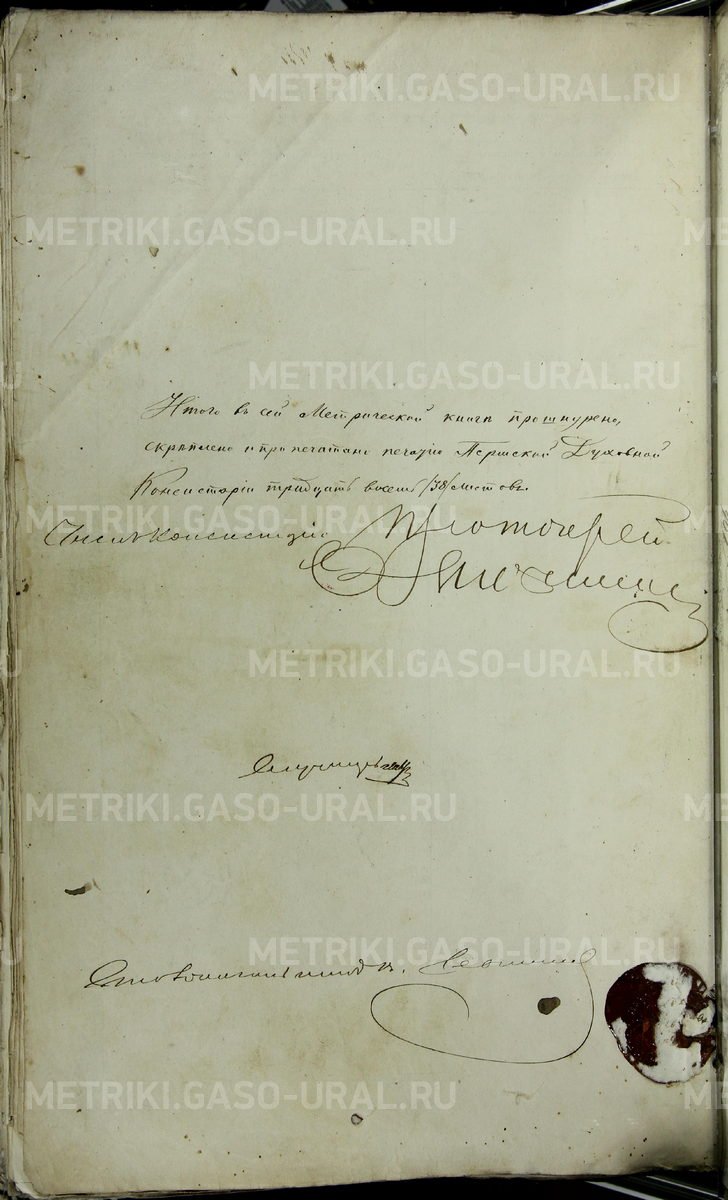 METRIKI.GASO-URAL.RU
METRIKI.GASO-URAL.RU
METRIKI.GASO-URAL.RU
Итого въ сей Метрической книгѣ прошнурено,
скрѣплено и пропечатано печатью Пермской Духовной
Консисторіи тридцать восемь /38/ листовъ.
METRIKI.GASO-URAL.RU
Членъ Консисторіи Протоіерей
METRIKI.GASO-URAL.RU
METRIKI.GASO-URAL.RU
METRIKI.GASO-URAL.RU
Столоначальникъ
METRIKI.GASO-URAL.RU